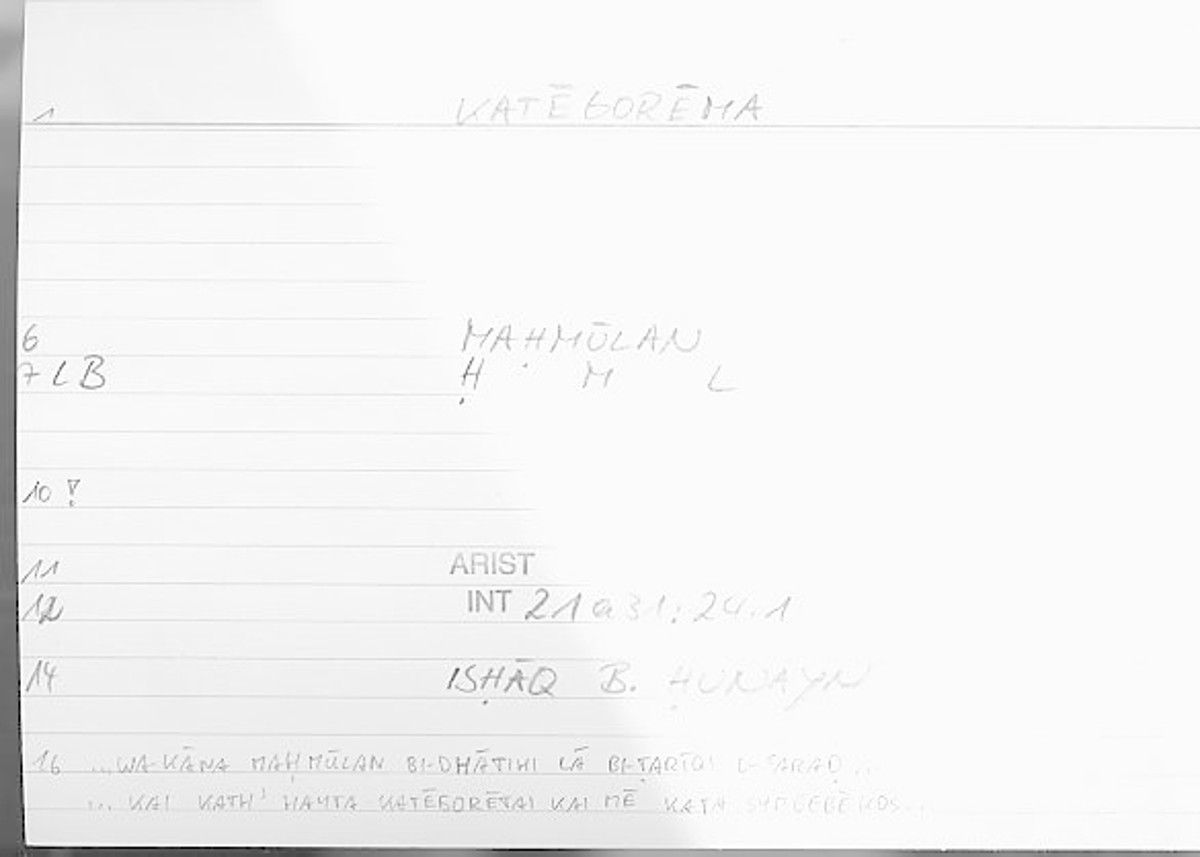 1 KATĒGORĒMA
6 MAḤMŪLAN
7 LB Ḥ M L
10 !
11 ARIST
12 INT 21a31; 24.1
14 ISḤĀQ B. ḤUNAYN
16 ...WA-KĀNA MAḤMŪLAN BI-DHĀTIHI LĀ BI-ṬARĪQI L-ʿARAḌ...
... KAI KATH' HAUTA KATĒGORĒTAI KAI MĒ KATA SYMBEBĒKOS...